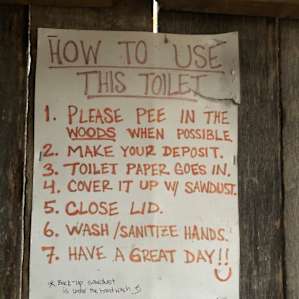 HOW TO USE
THIS TOILET
1. PLEASE PEE IN THE
WOODS WHEN POSSIBLE
2. MAKE YOUR DEPOSIT.
3. TOILET PAPER GOES IN.
4. COVER IT UP W/ SAWDUST.
5. CLOSE LID.
6. WASH/SANITIZE HANDS.
7. HAVE A GREAT DAY!!
* Back-up sawdust
is under the hand wash